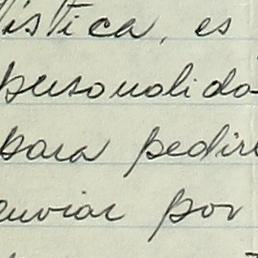 ística, es
personalida-
para pedir
enviar por